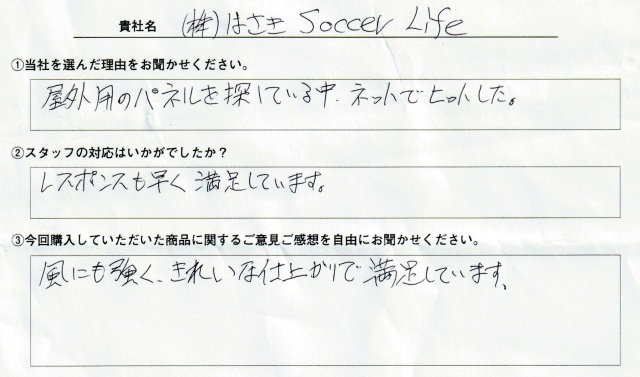 貴社名 (株)はさき Soccer Life
①当社を選んだ理由をお聞かせください。
屋外用のパネルを探している中、ネットでヒットした。
②スタッフの対応はいかがでしたか?
レスポンスも早く満足しています。
③今回購入していただいた商品に関するご意見ご感想を自由にお聞かせください。
風にも強く、きれいな仕上がりで満足しています。